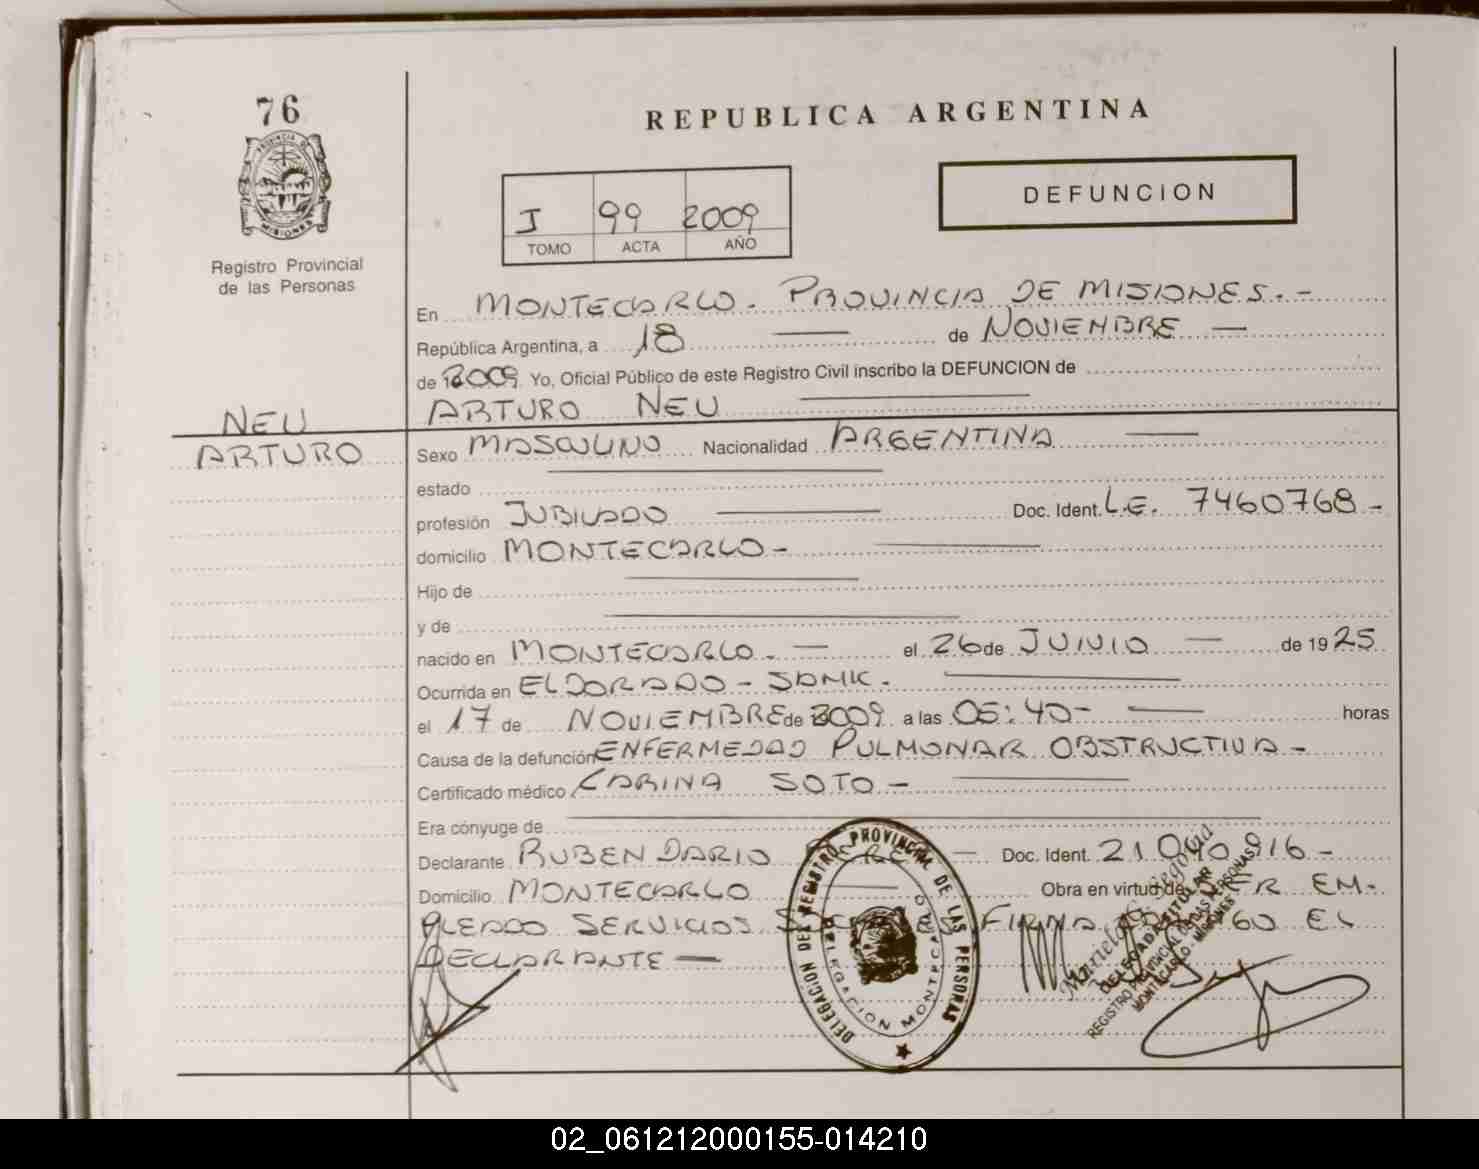 76
PROVINCIA DE
MISIONES
Registro Provincial
de las Personas
REPUBLICA ARGENTINA
I 99 2009
TOMO ACTA AÑO
DEFUNCION
En MONTECARLO. PROVINCIA DE MISIONES.-
República Argentina, a 18 — de NOVIEMBRE —
de 2009. Yo, Oficial Público de este Registro Civil inscribo la DEFUNCION de
NEU ARTURO NEU
ARTURO
Sexo MASCULINO Nacionalidad ARGENTINA —
estado —
profesión JUBILADO — Doc. Ident. L.E. 7460768-
domicilio MONTECARLO- —
Hijo de —
y de —
nacido en MONTECARLO. — el 26 de JUNIO — de 1925
Ocurrida en ELDORADO - SAMIC. —
el 17 de NOVIEMBRE de 2009. a las 05:40- — horas
Causa de la defunción ENFERMEDAD PULMONAR OBSTRUCTIVA-
Certificado médico CARINA SOTO- —
Era cónyuge de —
Declarante RUBEN DARIO — Doc. Ident. 21.0 916-
Domicilio MONTECARLO — Obra en virtud de SER EM-
PLEADO SERVICIOS FIRMA EL
DECLARANTE —
DELEGACION DEL REGISTRO PROVINCIAL DE LAS PERSONAS
DELEGACION MONTECARLO
DELEGADA TITULAR
REGISTRO PROVINCIAL DE LAS PERSONAS
MONTECARLO - MISIONES
02_061212000155-014210